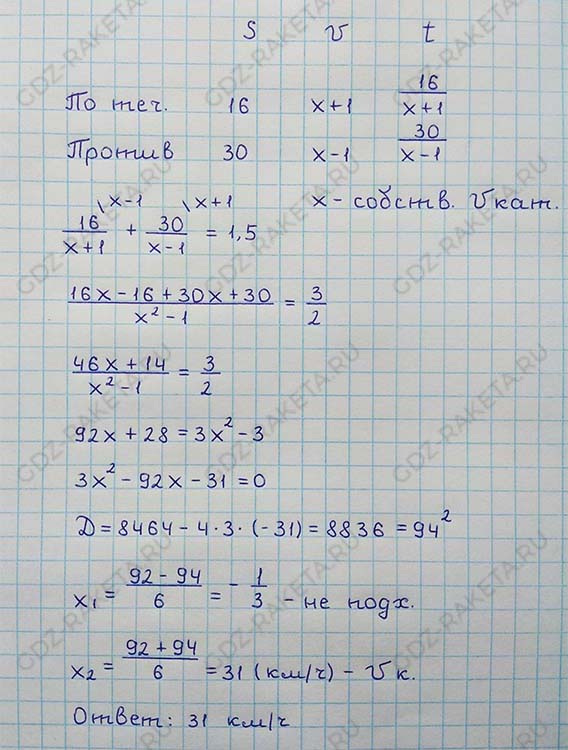 S v t
По теч. 16 x+1 16/(x+1)
Против 30 x-1 30/(x-1)
x - собств. v кат.
16/(x+1) \x-1 + 30/(x-1) \x+1 = 1,5
(16x-16+30x+30)/(x²-1) = 3/2
(46x+14)/(x²-1) = 3/2
92x+28=3x²-3
3x²-92x-31=0
Д=8464-4·3·(-31)=8836=94²
x₁=(92-94)/6=-1/3 - не подх.
x₂=(92+94)/6=31 (км/ч) - v к.
Ответ: 31 км/ч
GDZ-RAKETA.RU